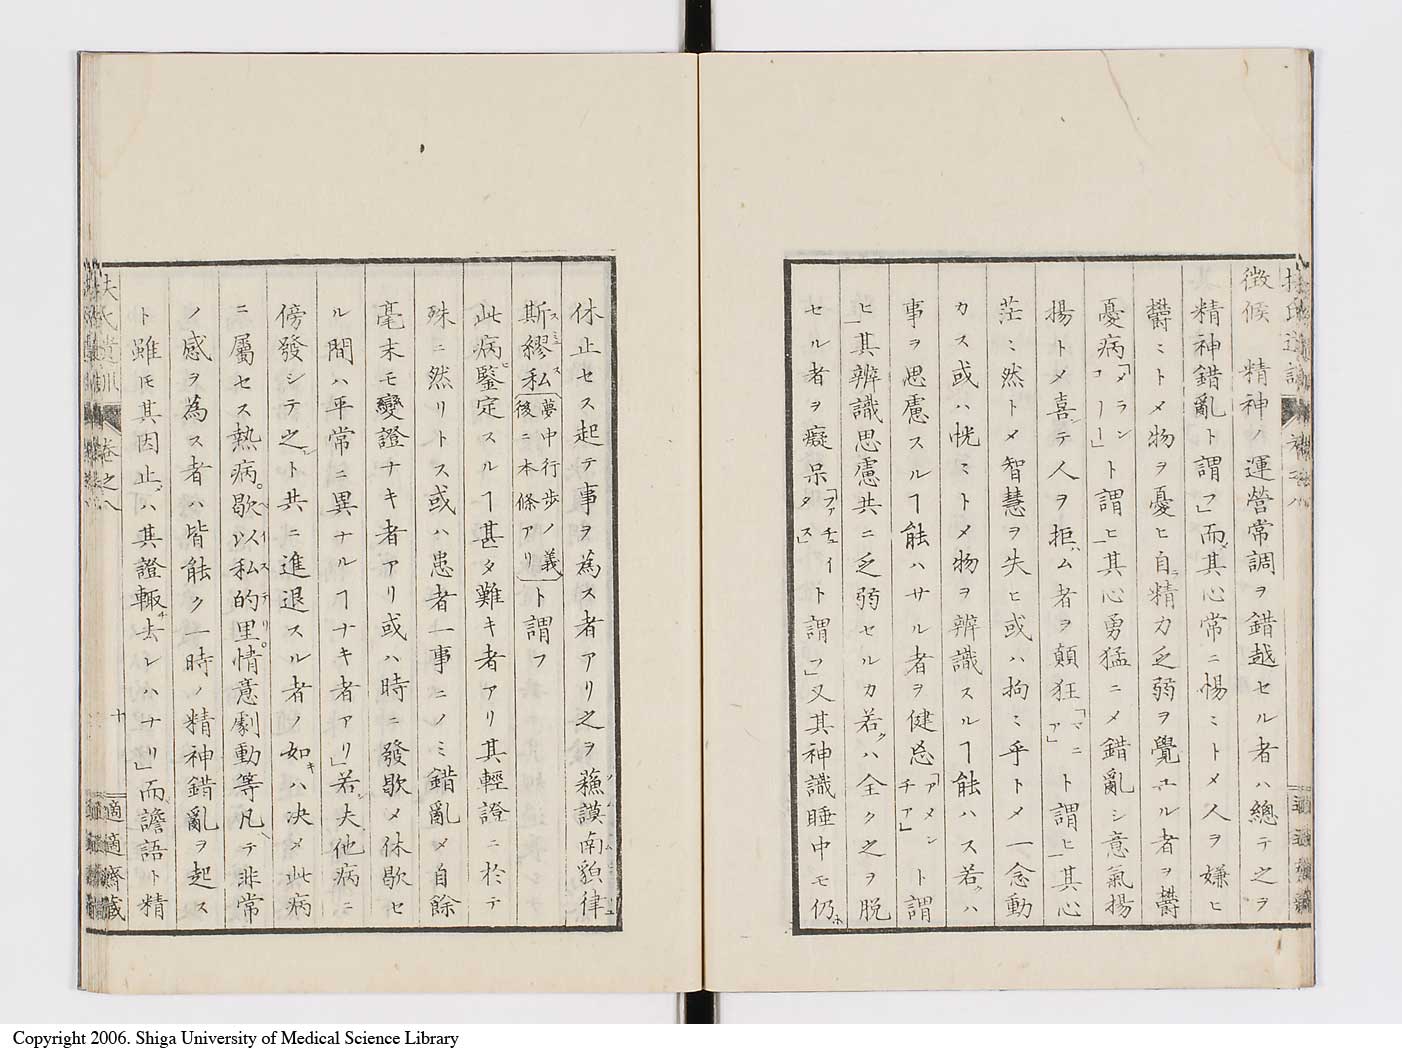 徴候　精神ノ運營常調ヲ錯越セル者ハ總テ之ヲ
精神錯亂ト謂フ」而其心常ニ惕ミトメ人ヲ嫌ヒ
欝ミトメ物ヲ憂ヒ自精力乏弱ヲ覺ユル者ヲ欝
憂病「メランコーリー」ト謂ヒ其心勇猛ニメ錯亂シ意氣揚
揚トメ喜テ人ヲ拒ム者ヲ顛狂「マニア」ト謂ヒ其心
茫ミ然トメ智慧ヲ失ヒ或ハ拘ミ乎トメ一念動
カス或ハ恍ミトメ物ヲ辨識スルヿ能ハス若ハ
事ヲ思慮スルヿ能ハサル者ヲ健忘「アメンチア」ト謂
ヒ其辨識思慮共ニ乏弱セルカ若ハ全ク之ヲ脱
セル者ヲ癡呆「ファチュイタス」ト謂フ」又其神識睡中モ仍
休止セス起テ事ヲ為ス者アリ之ヲ蘓謨南貌律
斯繆私夢中行歩ノ義後ニ本條アリト謂フ
此病鑒定スルヿ甚タ難キ者アリ其輕證ニ於テ
殊ニ然リトス或ハ患者一事ニノミ錯亂メ自餘
毫末モ變證ナキ者アリ或ハ時ニ發歇メ休歇セ
ル間ハ平常ニ異ナルヿナキ者アリ」若夫他病ニ
傍發シテ之ト共ニ進退スル者ノ如キハ决メ此病
ニ屬セス熱病。歇以私的里。情意劇動等凡テ非常
ノ感ヲ為ス者ハ皆能ク一時ノ精神錯亂ヲ起ス
ト雖モ其因止ハ其證輙去レハナリ」而譫語ト精
扶氏遺訓　巻之八　十　適適齋藏